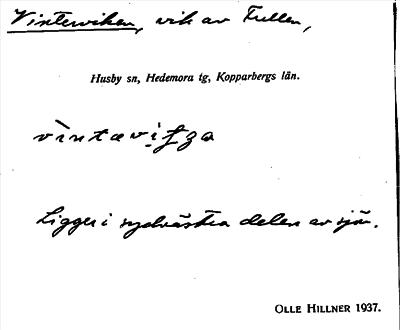 Vinterviken, vik av Fullen,
Husby sn, Hedemora tg, Kopparbergs län.
Ligger i sydvästra delen av sjön.
OLLE HILLNER 1937.